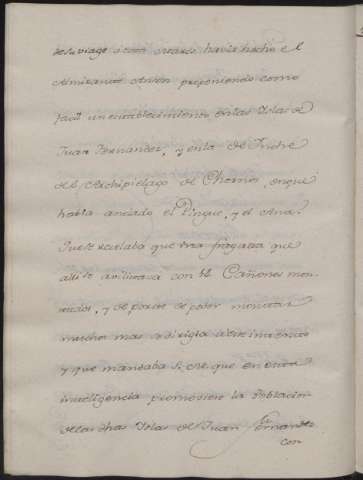 de su viage à esos mares havia hecho el
Almirante Anson proponiendo como
facil un establecimiento en las Yslas de
Juan Fernandez, y en la de Inchè
del Archipielago de Chonos, en que
havia anclado el Pingue, y el Ana.
Que se recelaba que una fragata que
alli se avilitava con 44 Cañones mon-
tados, y de porte de poder montar
muchos mas se dirigia à este intento
y que mandaba S. M. que en esta
inteligencia promoviese la Poblacion
de las dhas Yslas de Juan Fernandez
con